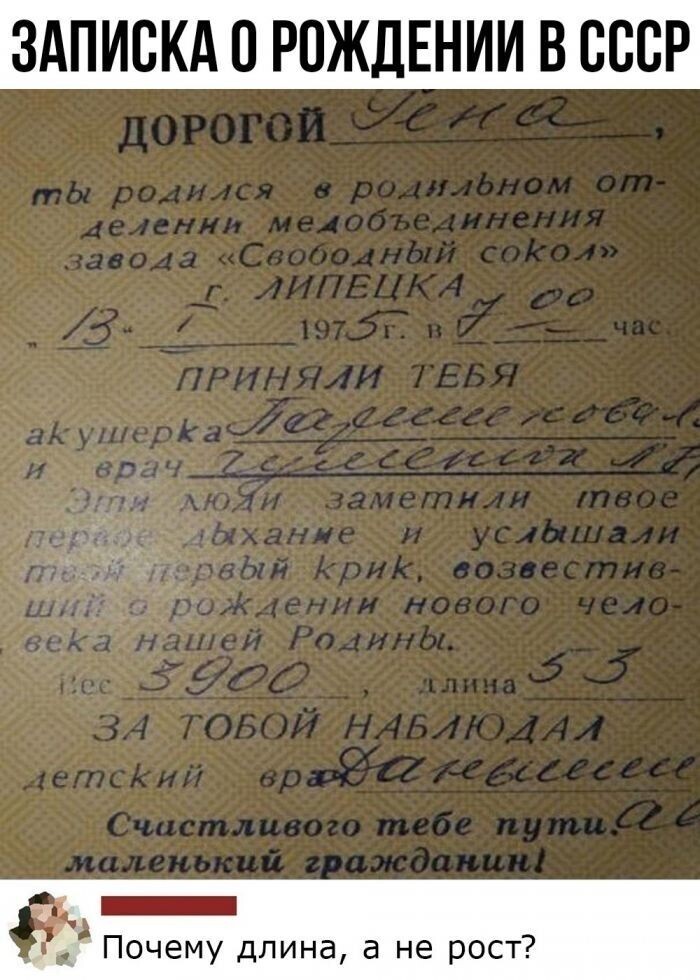 ЗАПИСКА О РОЖДЕНИИ В СССР
ДОРОГОЙ Гена,
ты родился в родильном от-
делении медобъединения
завода «Свободный сокол»
г. ЛИПЕЦКА
„13" I 1975г. в 7 00 час.
ПРИНЯЛИ ТЕБЯ
акушерка
и врач
Эти люди заметили твое
первое дыхание и услышали
твой первый крик, возвестив-
ший о рождении нового чело-
века нашей Родины.
Вес 3900, длина 53
ЗА ТОБОЙ НАБЛЮДАЛ
детский врач
Счастливого тебе пути,
маленький гражданин!
Почему длина, а не рост?